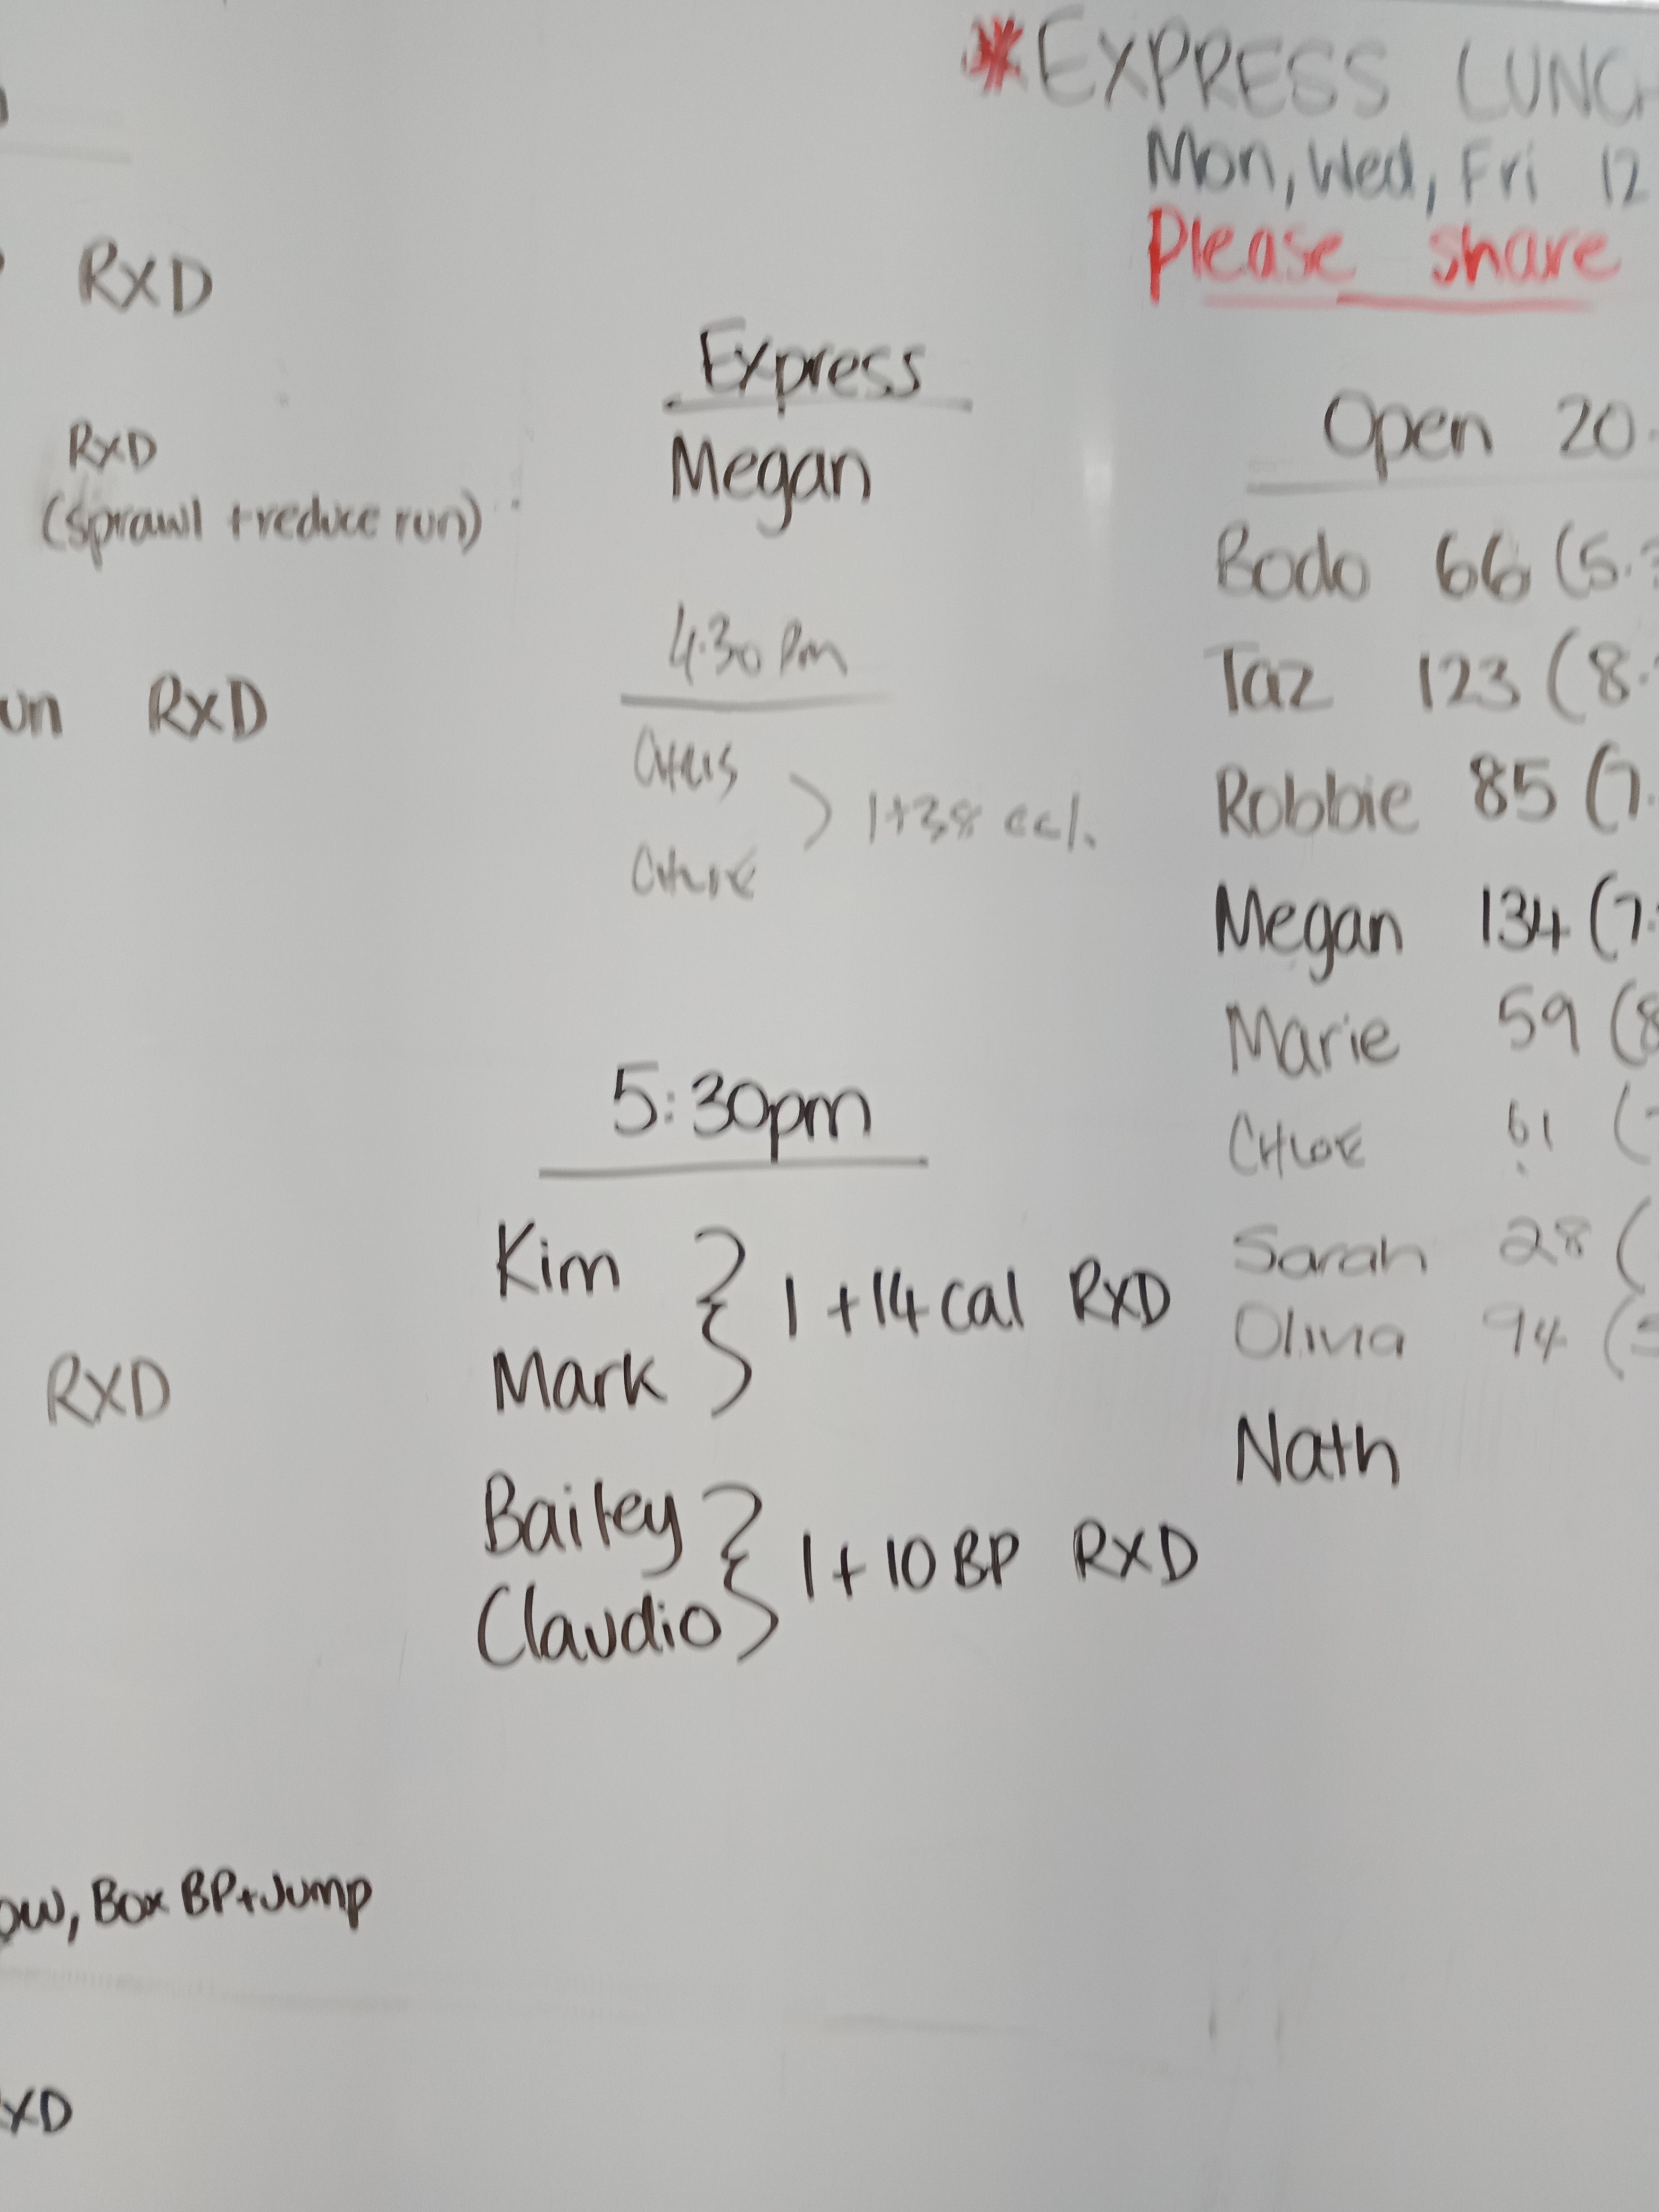 *EXPRESS LUNCH
Mon, Wed, Fri 12
Please share
RXD
RXD
(sprawl + reduce run)
un RXD
RXD
ow, Box BP+Jump
XD
Express
Megan
4:30 Pm
CHRIS
CHLOE
1+38 cal.
5:30pm
Kim
Mark
1 + 14 cal RXD
Bailey
Claudio
1 + 10 BP RXD
Open 20.
Bodo 66 (5.
Taz 123 (8.
Robbie 85 (7.
Megan 134 (7.
Marie 59 (8
CHLOE 61 (
Sarah 28 (
Olivia 94 (
Nath